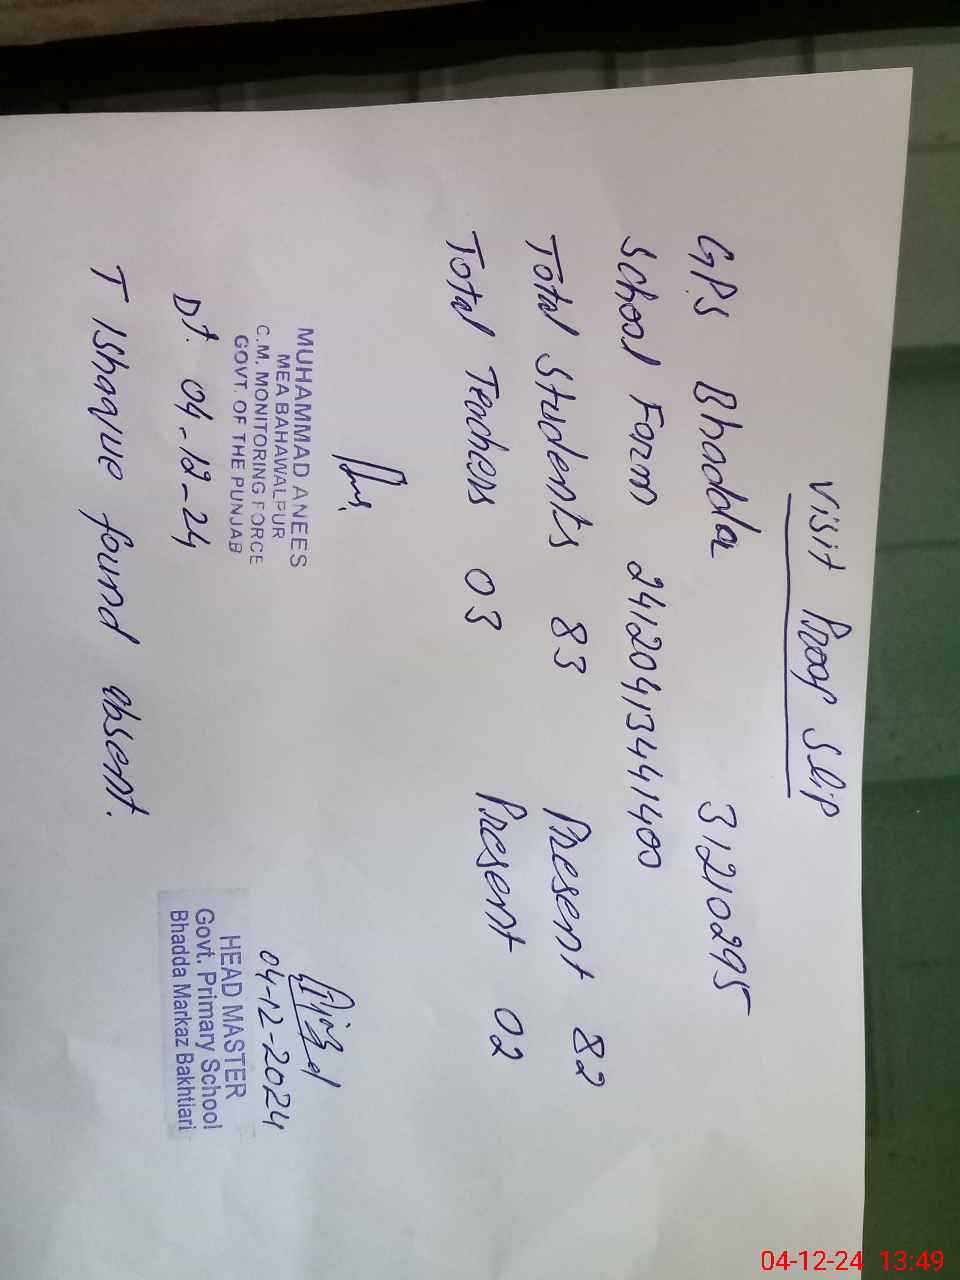 Visit Proof Slip
GPS Bhadda 31210295
School Form 24120413441400
Total Students 83 Present 82
Total Teachers 03 Present 02
MUHAMMAD ANEES
MEA BAHAWALPUR
C.M. MONITORING FORCE
GOVT. OF THE PUNJAB
Dt. 04-12-24
04-12-2024
HEAD MASTER
Govt. Primary School
Bhadda Markaz Bakhtiari
T Ishaque found absent.
04-12-24 13:49